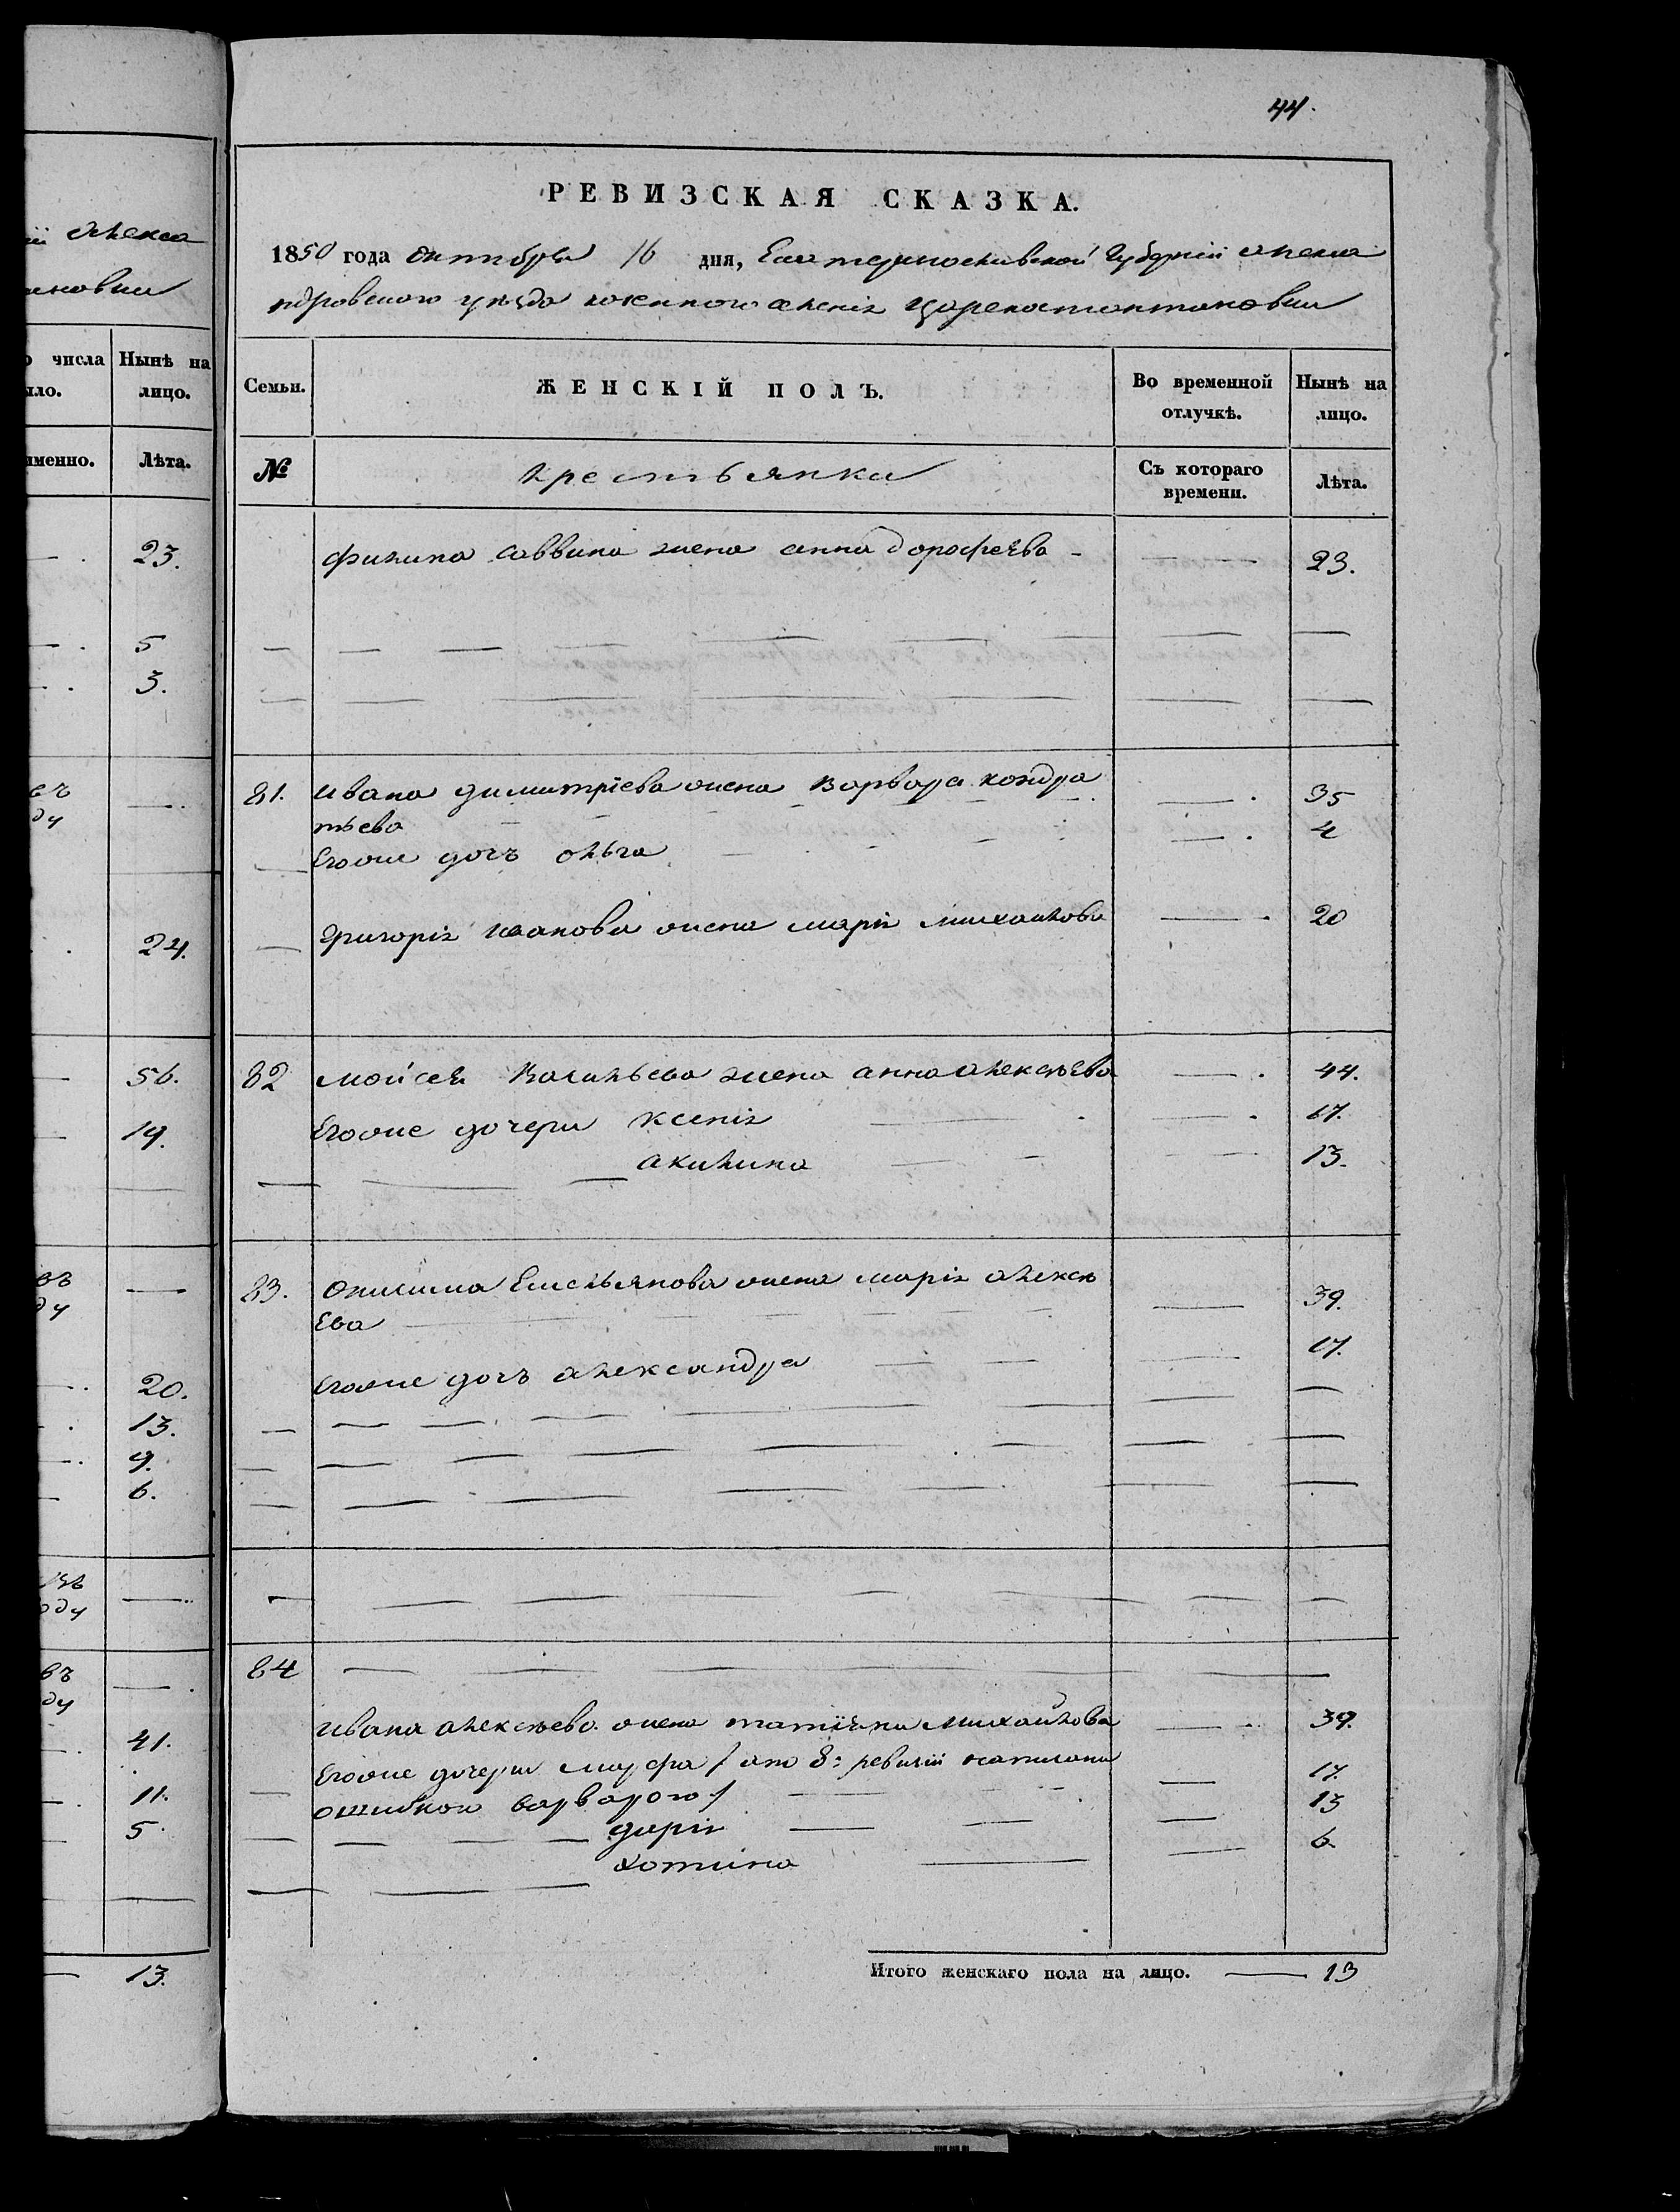 44.
РЕВИЗСКАЯ СКАЗКА.
1850 года октября 16 дня, Екатеринославской Губернии алекса
ндровского уезда казенного селения Цареконстантиновки
Семьи.
ЖЕНСКІЙ ПОЛЪ.
Во временной отлучкѣ.
Нынѣ на лицо.
№
крестьянки
Съ котораго времени.
Лѣта.
филипа саввина жена анна дорофеева — 23.
81. Ивана димитріева жена варвара кондра — 35
тьева
Егоже дочъ ольга — 4
григорія иванова жена марія михайлова — 20
82 мойсея васильева жена анна алексѣева — 44.
Егоже дочери ксенія — 17.
акилина — 13.
83. онисима Емельянова жена марія алексѣ — 39.
Ева
Егоже дочъ александра — 17.
84
ивана алексѣева жена татіяна михайлова — 39.
Егоже дочери марфа / по 8: ревизіи написана — 17.
ошибкою варварою /
дарія — 13
6.
Итого женскаго пола на лицо. — 13
алекса
новки
числа
ыло.
Нынѣ на
лицо.
именно.
Лѣта.
23.
5
3.
въ
ду
24.
56.
19.
въ
ду
20.
13.
9.
6.
въ
оду
въ
ду
41.
11.
5.
13.